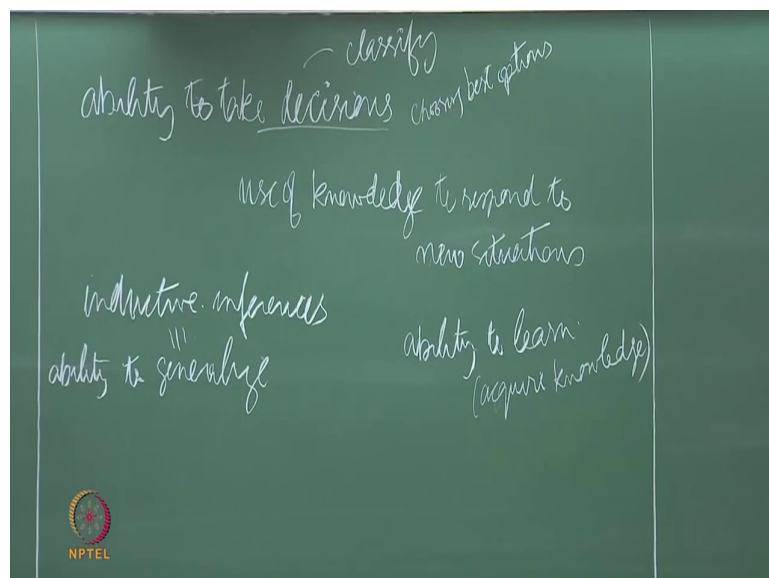 classify
ability to take decisions choosing best options
use of knowledge to respond to
new situations
inductive inferences
|||
ability to generalize
ability to learn
(acquire knowledge)
NPTEL